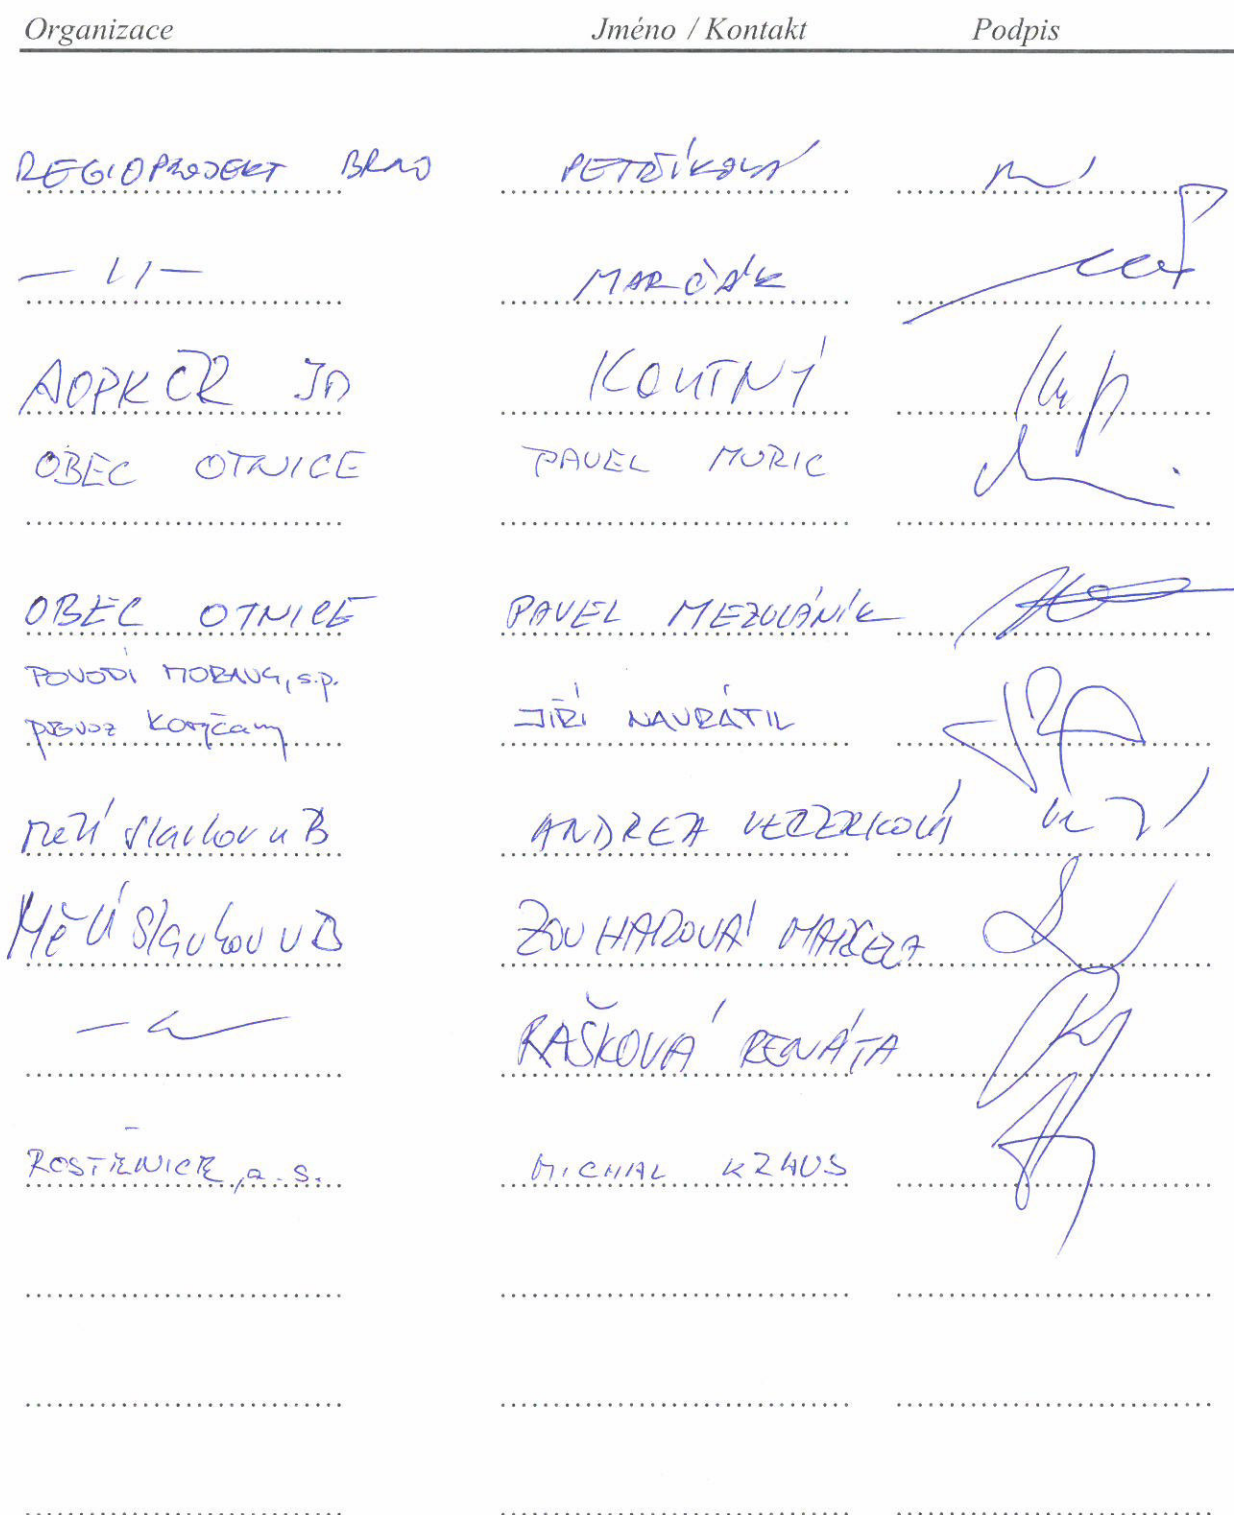 Organizace Jméno / Kontakt Podpis
REGIOPROJEKT BRNO PETŘÍKOVÁ
— 11 — MARČÁK
AOPK ČR JM KOUTNÝ
OBEC OTNICE PAVEL MORIC
OBEC OTNICE PAVEL MEZULÁNÍK
POVODÍ MORAVY, s.p.
provoz Koryčany JIŘÍ NAVRÁTIL
MěÚ Slavkov u B ANDREA VEČEŘKOVÁ
MěÚ Slavkov u B ZOUHAROVÁ MARCELA
RAŠKOVÁ RENÁTA
ROSTĚNICE, a.s. MICHAL KRAUS